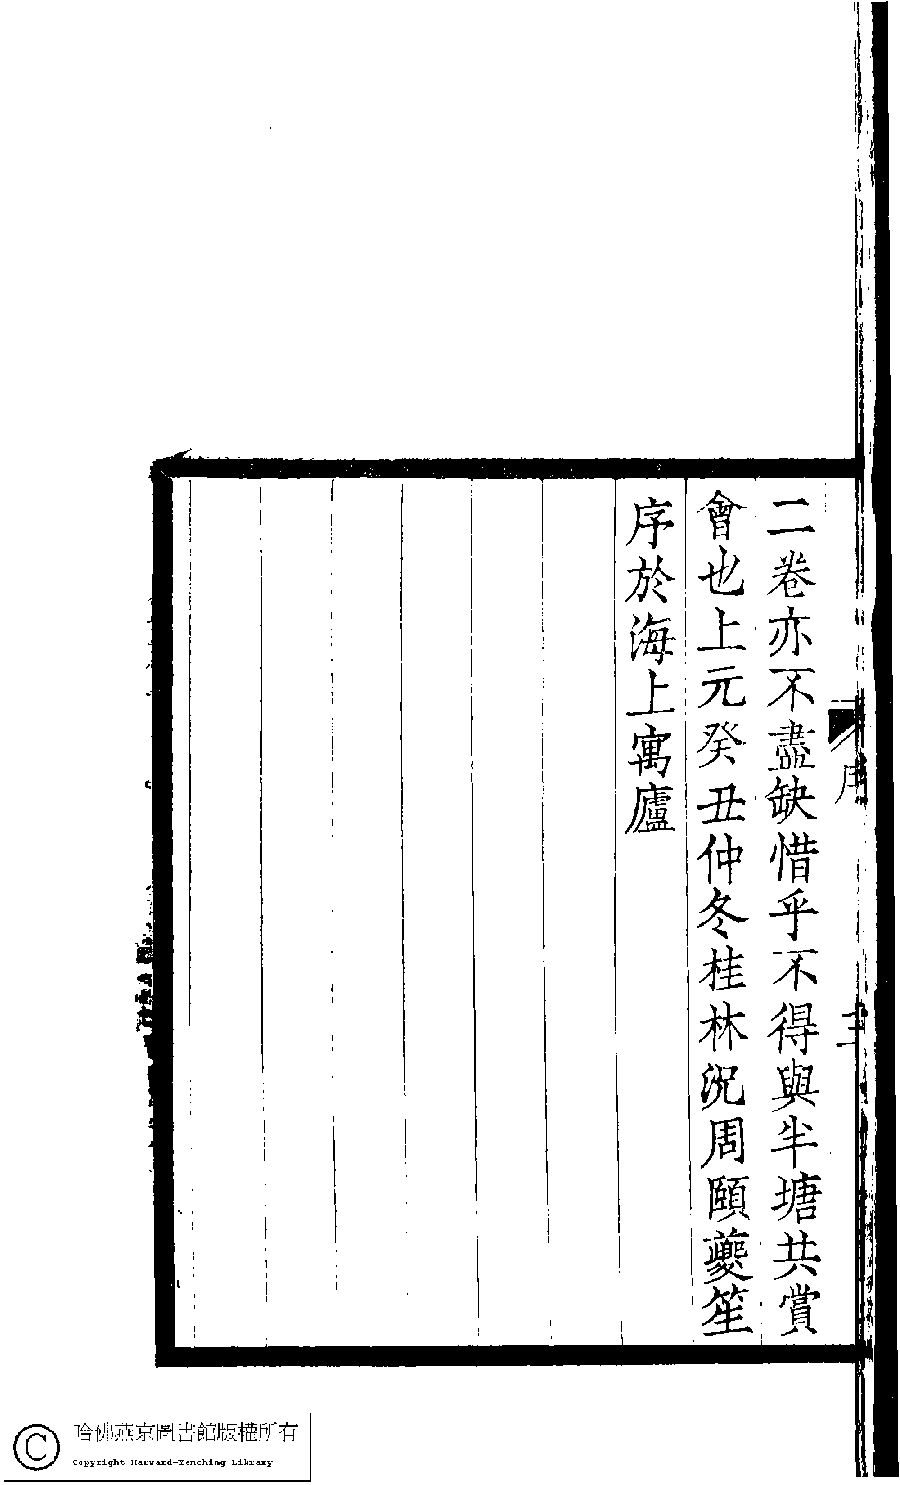 二卷亦不盡缺惜乎不得與半塘共賞
會也上元癸丑仲冬桂林況周頤夔笙
序於海上寓廬
序
三
哈佛燕京圖書館版權所有
Copyright Harvard-Yenching Library